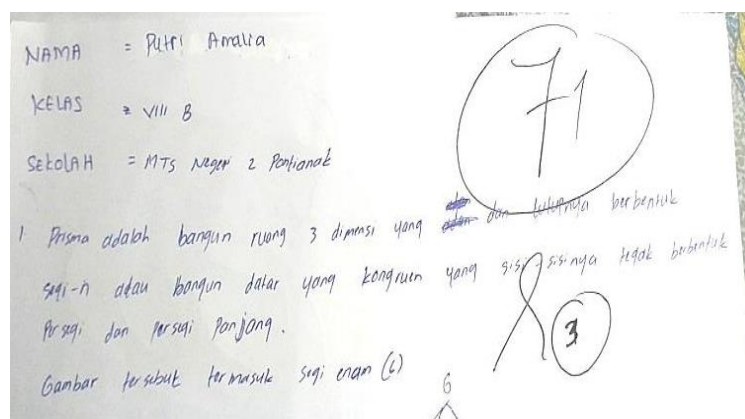 NAMA = Putri Amalia
71
KELAS = VIII B
SEKOLAH = MTS Negeri 2 Pontianak
1. Prisma adalah bangun ruang 3 dimensi yang dan tutupnya berbentuk
segi-n atau bangun datar yang kongruen yang sisi-sisinya tegak berbentuk
persegi dan persegi panjang.
3
Gambar tersebut termasuk segi enam (6)
6